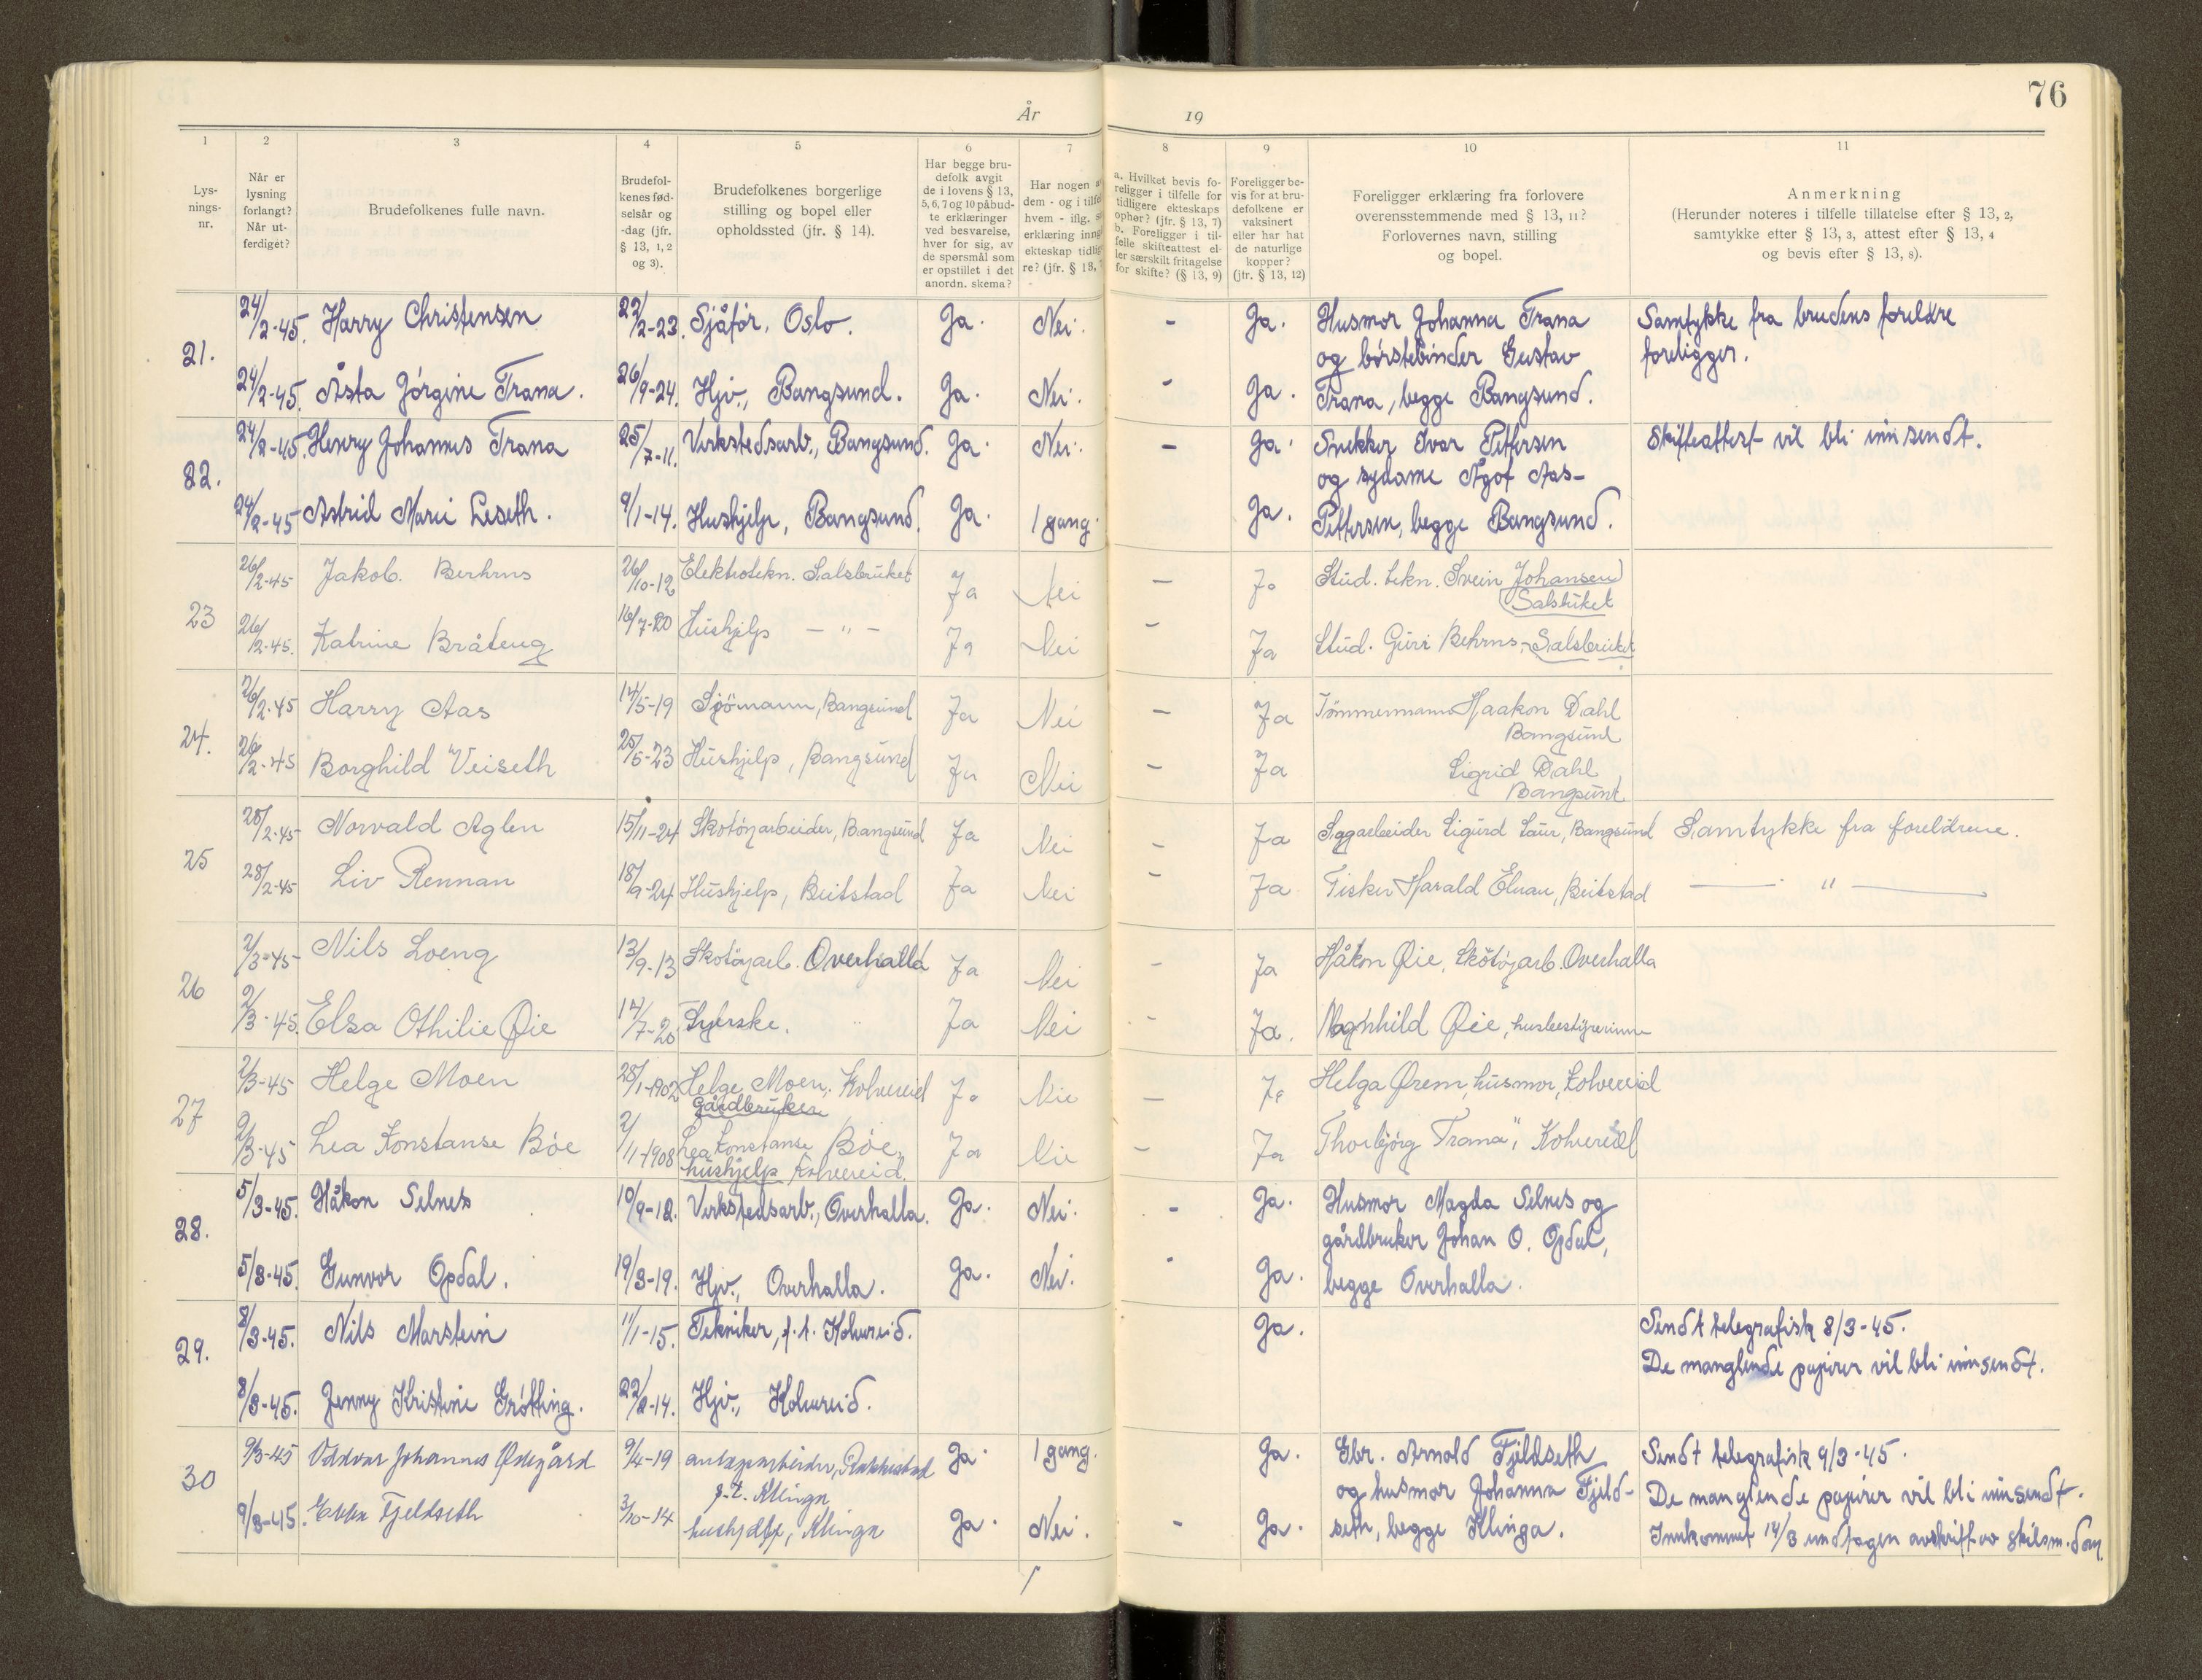 76
År 19
1 2 3 4 5 6 7 8 9 10 11
Lys-
nings-
nr.
Når er
lysning
forlangt?
Når ut-
ferdiget?
Brudefolkenes fulle navn.
Brudefol-
kenes fød-
selsår og
-dag (jfr.
§ 13, 1, 2
og 3).
Brudefolkenes borgerlige
stilling og bopel eller
opholdssted (jfr. § 14).
Har begge bru-
defolk avgit
de i lovens § 13,
5, 6, 7 og 10 påbud-
te erklæringer
ved besvarelse,
hver for sig, av
de spørsmål som
er opstillet i det
anordn. skema?
Har nogen
dem - og i tilfe
hvem - iflg.
erklæring inng
ekteskap tidlig
re? (jfr. § 13,
a. Hvilket bevis fo-
religger i tilfelle for
tidligere ekteskaps
ophør? (jfr. § 13, 7)
b. Foreligger i til-
felle skifteattest el-
ler særskilt fritagelse
for skifte? (§ 13, 9)
Foreligger be-
vis for at bru-
defolkene er
vaksinert
eller har hat
de naturlige
kopper?
(jfr. § 13, 12)
Foreligger erklæring fra forlovere
overensstemmende med § 13, 11?
Forlovernes navn, stilling
og bopel.
Anmerkning
(Herunder noteres i tilfelle tillatelse efter § 13, 2,
samtykke efter § 13, 3, attest efter § 13, 4
og bevis efter § 13, 8).
21.
24/2-45. Harry Christensen 22/2-23. Sjåfør, Oslo. Ja. Nei. - Ja. Husmor Johanna Trana Samtykke fra brudens foreldre
og børstebinder Gustav foreligger.
24/2-45. Åsta Jørgine Trana. 26/9-24. Hjv., Bangsund. Ja. Nei. - Ja. Trana, begge Bangsund.
22.
24/2-45. Henry Johannes Trana 25/7-11. Verkstedsarb., Bangsund. Ja. Nei. - Ja. Snekker Ivar Pettersen Skifteattest vil bli innsendt.
og sydame Ågot Aas-
24/2-45 Astrid Marie Leseth. 9/1-14. Hushjelp, Bangsund. Ja. 1 gang. Ja. Pettersen, begge Bangsund.
23
26/2-45 Jakob. Berhrns 26/10-12 Elektrotekn. Salsbruket Ja Nei - Ja Stud. tekn. Svein Johansen
Salsbuket
26/2-45. Katrine Bråteng 16/7-20 Hushjelp - " - Ja Nei - Ja Stud. Guri Behrns, Salsbruket
24.
26/2-45 Harry Aas 14/5-19 Sjömann, Bangsund Ja Nei - Ja Tömmermann Haakon Dahl
Bangsund
26/2-45 Borghild Veiseth 25/5-23 Hushjelp, Bangsund Ja Nei - Ja Sigrid Dahl
Bangsund
25
28/2-45 Norvald Aglen 15/11-24 Skotöyarbeider, Bangsund Ja Nei - Ja Sagarbeider Sigurd Saur, Bangsund Samtykke fra foreldrene.
28/2-45 Liv Rennan 18/9-24 Hushjelp, Beitstad Ja Nei - Ja Fisker Harald Elnan, Beitstad - " -
26
2/3-45 Nils Loeng 13/9-13 Skotøyarb. Overhalla Ja Nei - Ja Håkon Øie, Skötöyarb. Overhalla
2/3-45. Elsa Othilie Øie 14/7-20 Syerske. " Ja Nei - Ja. Magnhild Øie, husbestyrerinne
27
2/3-45 Helge Moen 28/1-1902 Helge Moen, Kolvereid Ja Nei - Ja Helga Ørem, husmor, Kolvereid
gårdbruker
2/3-45 Lea Konstanse Bøe 2/11-1908 Lea Konstanse Bøe, Ja Nei - Ja Thorbjørg Trana " Kolvereid
hushjelp Kolvereid.
28.
5/3-45. Håkon Selnes 10/9-12. Verkstedsarb., Overhalla. Ja. Nei. - Ja. Husmor Magda Selnes og
gårdbruker Johan O. Opdal,
5/3-45. Gunvor Opdal. 19/3-19. Hjv., Overhalla. Ja. Nei. - Ja. begge Overhalla.
29.
8/3-45. Nils Marstein 11/1-15. Tekniker, p.t. Kolvereid. Ja. Sendt telegrafisk 8/3-45.
De manglende papirer vil bli innsendt.
8/3-45. Jenny Kristine Grøtting. 22/2-14. Hjv., Kolvereid.
30
9/3-45 Oddvar Johannes Ødegård 9/4-19 anleggsarbeider, Rakkestad Ja. 1 gang. Ja. Gbr. Arnold Fjeldseth Sendt telegrafisk 9/3-45.
p.t. Klinga og husmor Johanna Fjeld- De manglende papirer vil bli innsendt.
9/3-45. Fjeldseth 3/10-14 hushjelp, Klinga Ja. Nei. - Ja. seth, begge Klinga. Innkommet 14/3 undtagen avskrift av skilsm.dom.